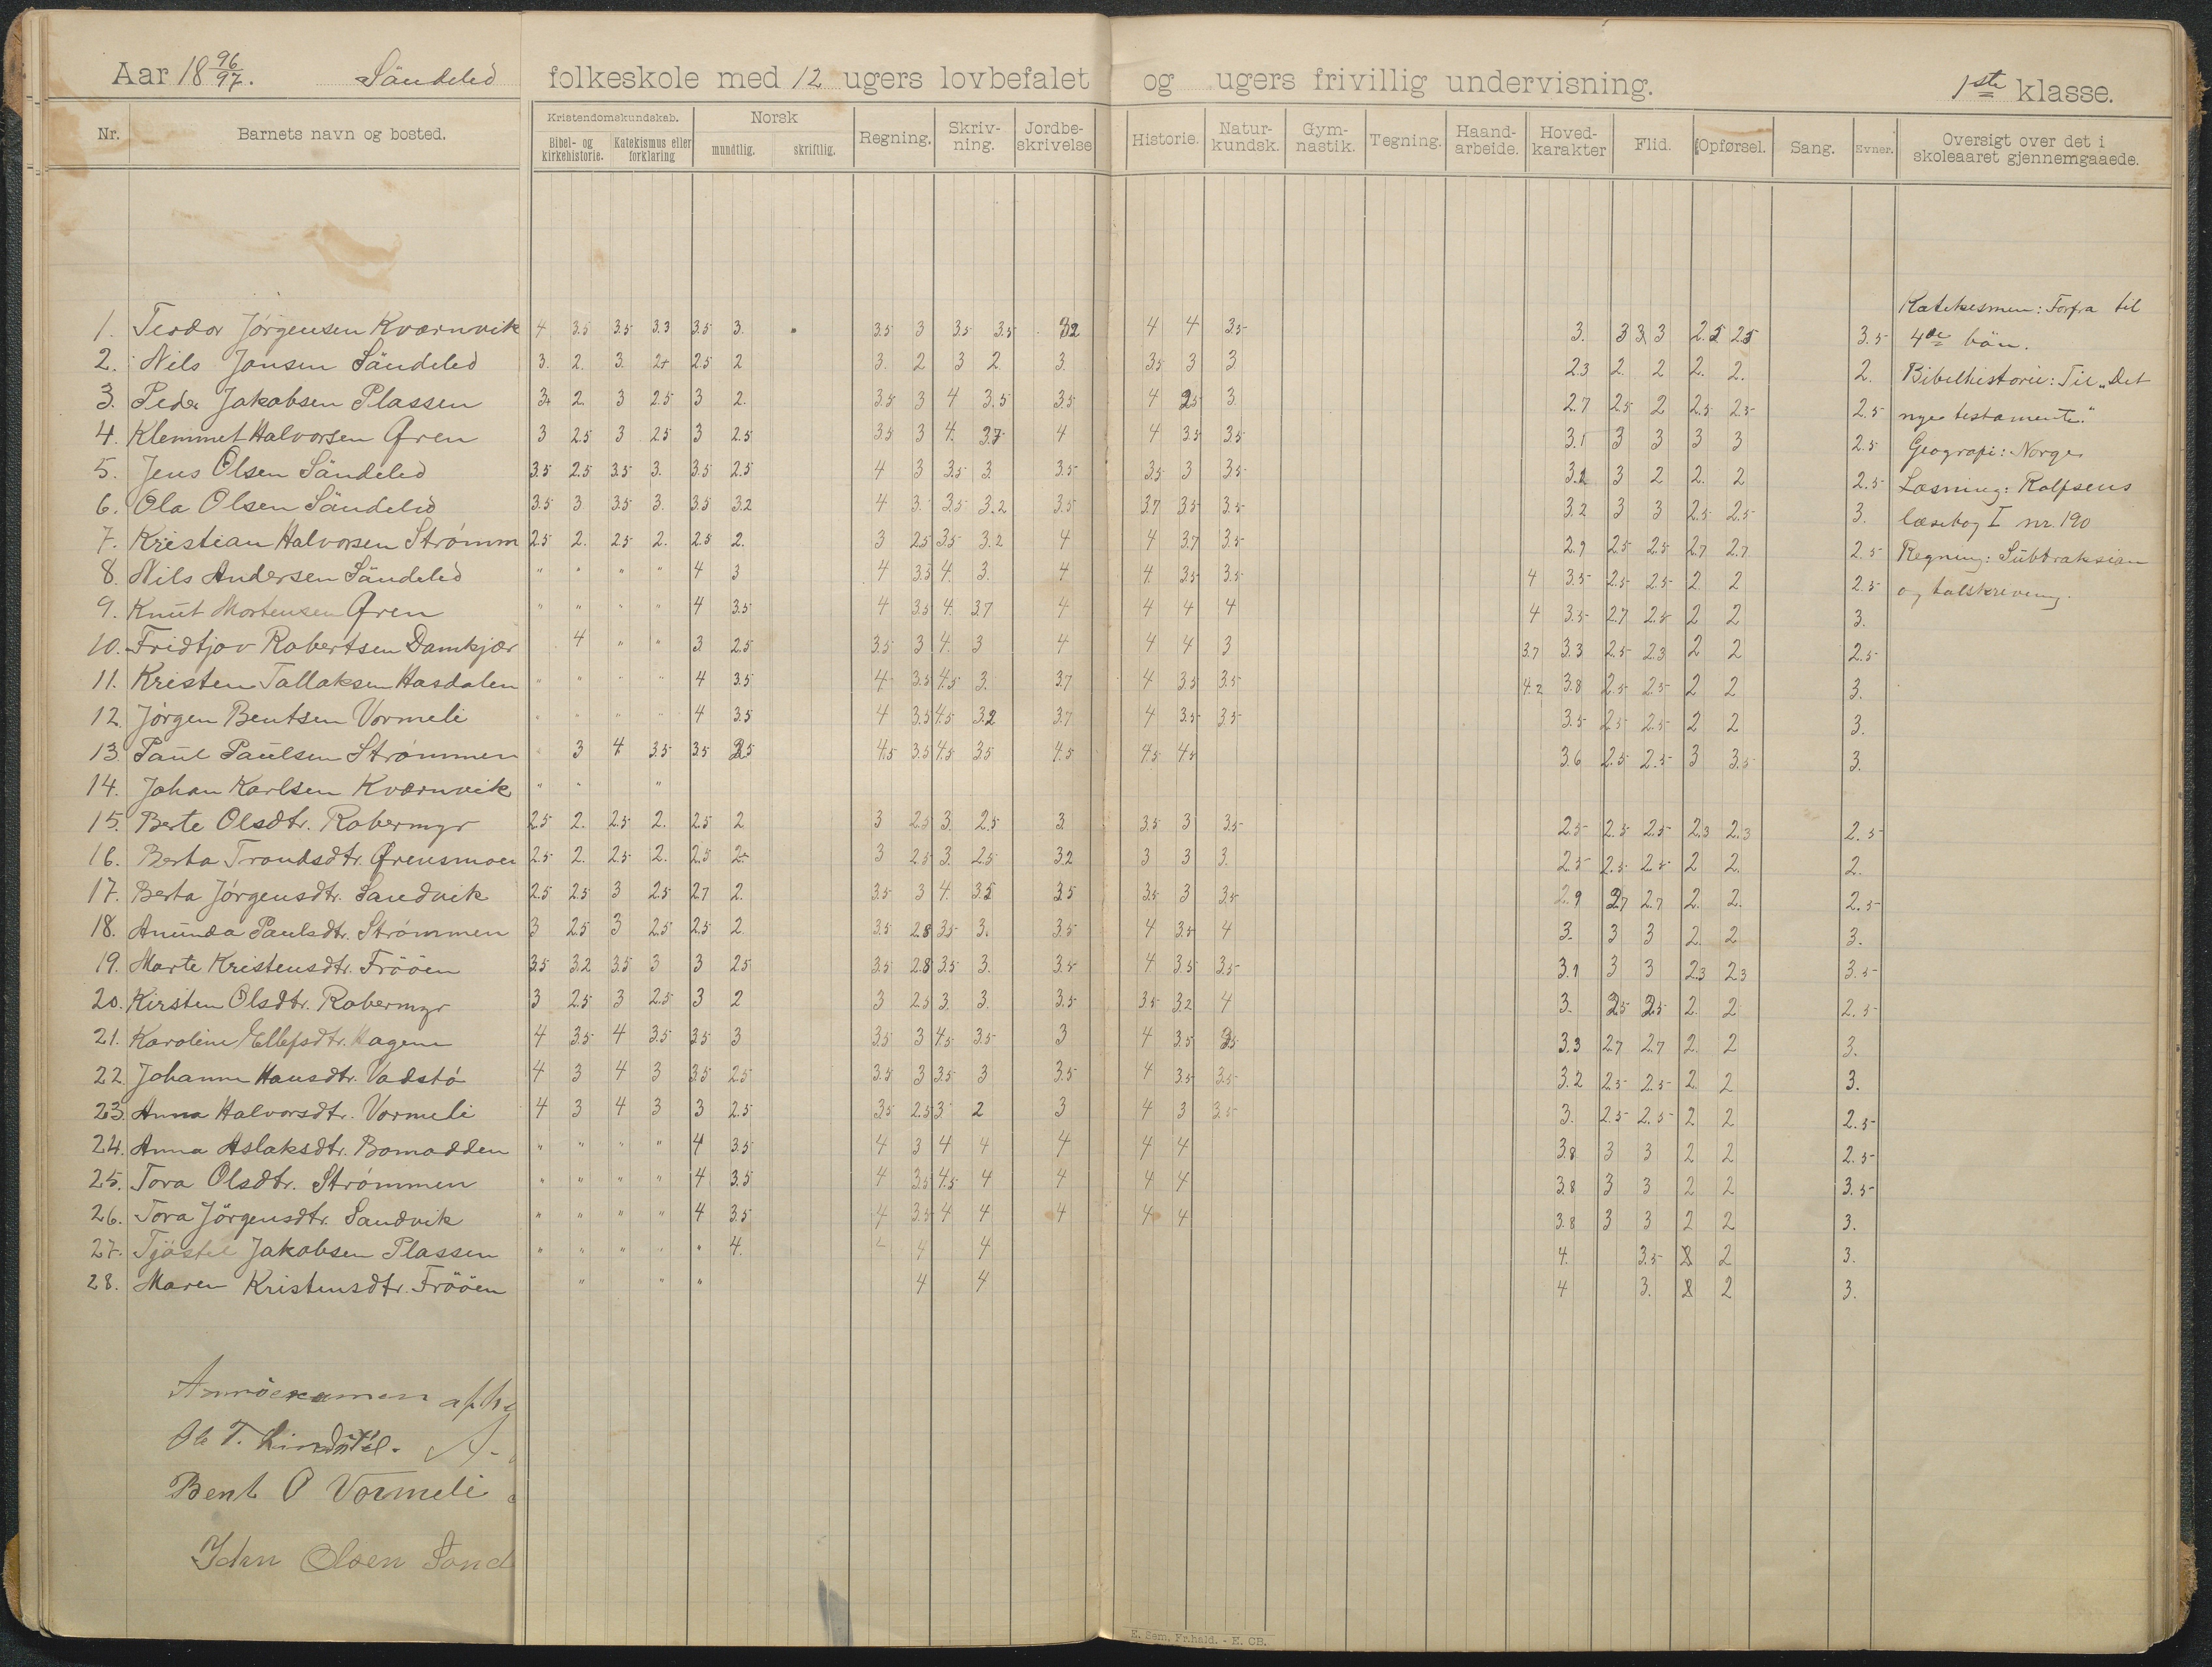 Aar 18 96/97. Sändeled folkeskole med 12 ugers lovbefalet og ugers frivillig undervisning. 1ste klasse.
Nr. Barnets navn og bosted. Kristendomskundskab. Bibel- og kirkehistorie. Katekismus eller forklaring Norsk mundtlig. skriftlig. Regning. Skriv-ning. Jordbe-skrivelse Historie. Natur-kundsk. Gym-nastik. Tegning. Haand-arbeide. Hoved-karakter Flid. Opførsel. Sang. Evner. Oversigt over det i skoleaaret gjennemgaaede.
1. Teodor Jörgensen Kværnvik 4 3.5 3.5 3.3 3.5 3. 3.5 3 3.5 3.5 4 4 3.5 3. 3 3 3 3.5
2. Nils Jansen Sändeled 3. 2. 3. 2+ 2.5 2 3. 2 3 2 3. 3.5 3 3 2.3 2. 2 2. 2. 2.
3. Peder Jakobsen Plassen 2. 3 2.5 3 2. 3.5 3 4 3.5 3.5 4 2.5 3. 2.7 2.5 2 2.5 2.5 2.5
4. Klemmet Halvorsen Øren 3 2.5 3 2.5 3 2.5 3.5 3 4. 3.7 4 4 3.5 3.5 3.1 3 3 3 3 2.5
5. Jens Olsen Sändeled 3.5 2.5 3.5 3. 3.5 2.5 4 3 3.5 3. 3.5 3.5 3 3.5 3 2 2. 2 2.5
6. Ola Olsen Sändeled 3.5 3 3.5 3. 3.5 3.2 4 3. 3.5 3.2 3.5 3.7 3.5 3.5 3.2 3 3 2.5 2.5 3.
7. Kristian Halvorsen Strömm 2.5 2. 2.5 2. 2.5 2. 3 2.5 3.5 3.2 4 4 3.7 3.5 2.9 2.5 2.5 2.7 2.7 2.5
8. Nils Andersen Sändeled " " " " 4 3 4 3.3 4. 3. 4 4. 3.5 3.5 4 3.5 2.5 2.5 2 2 2.5
9. Knut Mortensen Øren " " " " 4 3.5 4 3.5 4. 3.7 4 4 4 4 4 3.5 2.7 2.5 2 2 3.
10. Fridtjov Robertsen Damkjær 4 " " 3 2.5 3.5 3 4. 3 4 4 4 3 3.7 3.3 2.5 2.3 2 2 2.5
11. Kristen Tallaksen Hasdalen " " " " 4 3.5 4 3.5 4.5 3. 3.7 4 3.5 3.5 4.2 3.8 2.5 2.5 2 2 3.
12. Jörgen Bentsen Vormeli " " " " 4 3.5 4 3.5 4.5 3.2 3.7 4 3.5 3.5 3.5 2.5 2.5 2 2 3.
13. Paul Paulsen Strömmen " 3 4 3.5 3.5 4.5 3.5 4.5 3.5 4.5 4.5 4.5 3.6 2.5 2.5 3 3.5 3.
14. Johan Karlsen Kværnvik " " "
15. Berte Olsdtr. Robermyr 2.5 2. 2.5 2. 2.5 2 3 2.5 3. 2.5 3 3.5 3 3.5 2.5 2.5 2.5 2.3 2.3 2.5
16. Berta Trondsdtr. Ørensmoen 2.5 2. 2.5 2. 2.5 2. 3 2.5 3. 2.5 3.2 3 3 3. 2.5 2.5 2.5 2 2. 2.
17. Berta Jörgensdtr. Sandvik 2.5 2.5 3 2.5 2.7 2. 3.5 3 4. 3.5 3.5 3.5 3 3.5 2.9 2.7 2.7 2. 2. 2.5
18. Amunda Paulsdtr. Strömmen 3 2.5 3 2.5 2.5 2. 3.5 2.8 3.5 3. 3.5 4 3.5 4 3. 3 3 2. 2 3.
19. Marte Kristensdtr. Frööen 3.5 3.2 3.5 3 3 2.5 3.5 2.8 3.5 3. 3.5 4 3.5 3.5 3.1 3 3 2.3 2.3 3.5
20. Kirsten Olsdtr. Robermyr 3 2.5 3 2.5 3 2 3 2.5 3. 3. 3.5 3.5 3.2 4 3. 2.5 2.5 2. 2 2.5
21. Karoline Ellefsdtr. Hagene 4 3.5 4 3.5 3.5 3 3.5 3 4.5 3.5 3 4 3.5 3.5 3.3 2.7 2.7 2. 2 3.
22. Johanne Hansdtr. Vadstö 4 3 4 3 3.5 2.5 3.5 3 3.5 3 3.5 4 3.5 3.5 3.2 2.5 2.5 2. 2 3.
23. Anna Halvorsdtr. Vormeli 4 3 4 3 3 2.5 3.5 2.5 3 2 3 4 3 3.5 3. 2.5 2.5 2 2 2.5
24. Anna Aslaksdtr. Bomadden " " " " 4 3.5 4 3 4 4 4 4 4 3.8 3 3 2 2 2.5
25. Tora Olsdtr. Strömmen " " " " 4 3.5 4 3.5 4.5 4 4 4 4 3.8 3 3 2 2 3.5
26. Tora Jörgensdtr. Sandvik " " " " 4 3.5 4 3.5 4 4 4 4 4 3.8 3 3 2 2 3.
27. Tjöstel Jakobsen Plassen " " " " " 4. 4 4 4. 3.5 2 3.
28. Maren Kristensdtr. Frööen " " " 4 4 4 3. 2 3.
Katekesmen: Forfra til
4de bön.
Bibelhistorie: Til „Det
nye testamente."
Geografi: Norge
Læsning: Rolfsens
læsebog I nr. 190
Regning: Subtraksion
og talskrivning.
Bent O Vormeli
Olsen Sond
E. Sem, Fr.hald. - E. CB.